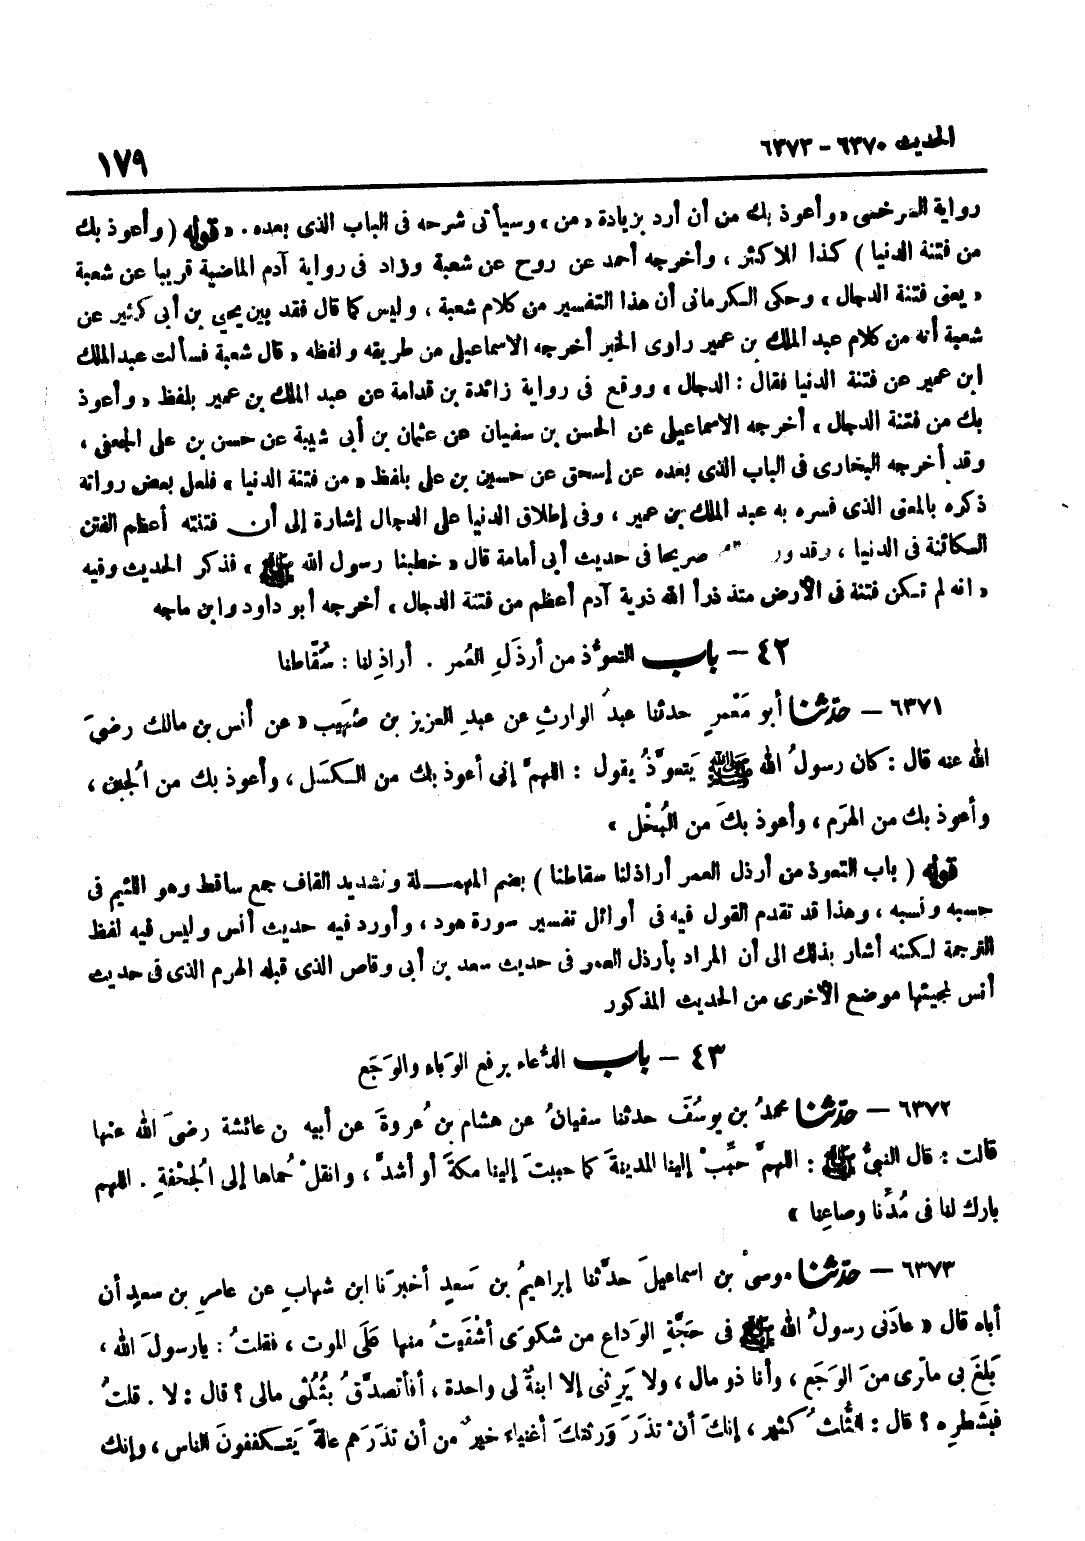 الحديث ٦٣٧٠ - ٦٣٧٣
١٧٩
رواية السرخسى « وأعوذ بك من أن أرد بزيادة « من » وسيأتى شرحه فى الباب الذى بعده . « قوله ( وأعوذ بك
من فتنة الدنيا ) كذا للاكثر ، وأخرجه أحمد عن روح عن شعبة وزاد فى رواية آدم الماضية قريبا عن شعبة
« يعنى فتنة الدجال » وحكى الكرمانى أن هذا التفسير من كلام شعبة ، وليس كما قال فقد بين يحيي بن أبى كثير عن
شعبة أنه من كلام عبد الملك بن عمير راوى الخبر أخرجه الاسماعيلى من طريقه ولفظه « قال شعبة فسألت عبد الملك
ابن عمير عن فتنة الدنيا فقال : الدجال » ووقع فى رواية زائدة بن قدامة عن عبد الملك بن عمير بلفظ « وأعوذ
بك من فتنة الدجال » أخرجه الاسماعيلى عن الحسن بن سفيان عن عثمان بن أبى شيبة عن حسن بن على الجعفى ،
وقد أخرجه البخارى فى الباب الذى بعده عن إسحق عن حسين بن على بلفظ « من فتنة الدنيا » فلعل بعض رواته
ذكره بالمعنى الذى فسره به عبد الملك بن عمير ، وفى إطلاق الدنيا على الدجال إشارة إلى أن فتنته أعظم الفتن
الكائنة فى الدنيا ، وقد ور صريحا فى حديث أبى أمامة قال « خطبنا رسول الله ﷺ » فذكر الحديث وفيه
« انه لم تكن فتنة فى الأرض منذ ذرأ الله ذرية آدم أعظم من فتنة الدجال » أخرجه أبو داود وابن ماجه
٤٢ - باب التعوُّذ من أرذَلِ العُمر . أراذِلنا : سُقّاطنا
٦٣٧١ - حدّثنا أبو مَعْمرٍ حدثنا عبدُ الوارثِ عن عبدِ العزيز بن صُهَيب « عن أنس بن مالك رضىَ
الله عنه قال : كان رسولُ الله ﷺ يَتعوَّذُ يقول : اللهمَّ إنى أعوذ بك من الكسَل ، وأعوذ بك من الُجبن ،
وأعوذ بك من الهرَم ، وأعوذ بكَ من البُخْل »
قوله ( باب التعوذ من أرذل العمر أراذلنا سقاطنا ) بضم المهملة وتشديد القاف جمع ساقط وهو اللئيم فى
حسبه ونسبه ، وهذا قد تقدم القول فيه فى أوائل تفسير سورة هود ، وأورد فيه حديث أنس وليس فيه لفظ
الترجمة لكنه أشار بذلك الى أن المراد بأرذل العمر فى حديث سعد بن أبى وقاص الذى قبله الهرم الذى فى حديث
أنس لمجيئها موضع الأخرى من الحديث المذكور
٤٣ - باب الدُّعاء برفع الوَباء والوَجَع
٦٣٧٢ - حدّثنا محمدُ بن يوسُفَ حدثنا سفيانُ عن هشام بن عُروةَ عن أبيه ن عائشة رضىَ الله عنها
قالت : قال النبىُّ ﷺ : اللهمَّ حبِّبْ إلينا المدينةَ كما حببتَ إلينا مكةَ أو أشدَّ ، وانقلْ حُماها إلى الُجحْفةِ . اللهم
بارك لنا فى مُدِّنا وصاعِنا »
٦٣٧٣ - حدّثنا موسىٰ بن اسماعيلَ حدَّثنا إبراهيمُ بن سَعدٍ أخبرَنا ابن شهابٍ عن عامرِ بن سعدٍ أن
أباه قال « عادَنى رسولُ الله ﷺ فى حَجَّةِ الوَداع من شكوَى أشْفَيتُ منها عَلَى الموت ، فقلتُ : يارسولَ الله ،
بَلغَ بى ماترى منَ الوَجَع ، وأنا ذو مال ، ولا يَرِثنى إلا ابنةٌ لى واحدة ، أفأتصدَّقُ بثُلثَى مالى ؟ قال : لا . قلتُ
فبشَطرِه ؟ قال : الثُّلثُ كثير ، إنكَ أنْ تذَرَ وَرثتكَ أغنياءَ خيرٌ من أن تذرَهم عالةً يَتكففونَ الناس ، وإنك